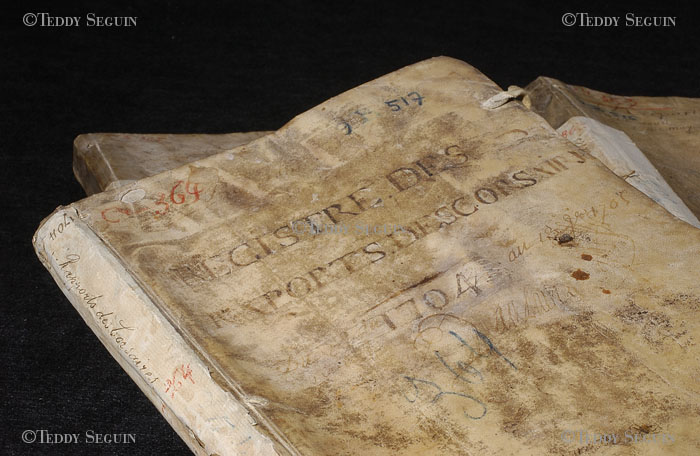 ©TEDDY SEGUIN
©TEDDY SEGUIN
517
364
REGISTRE DES
RAPORTS DES CORSAIRE
1704
au 13
364
1704
Rapports des Corsaires
364
©TEDDY SEGUIN
©TEDDY SEGUIN
©TEDDY SEGUIN